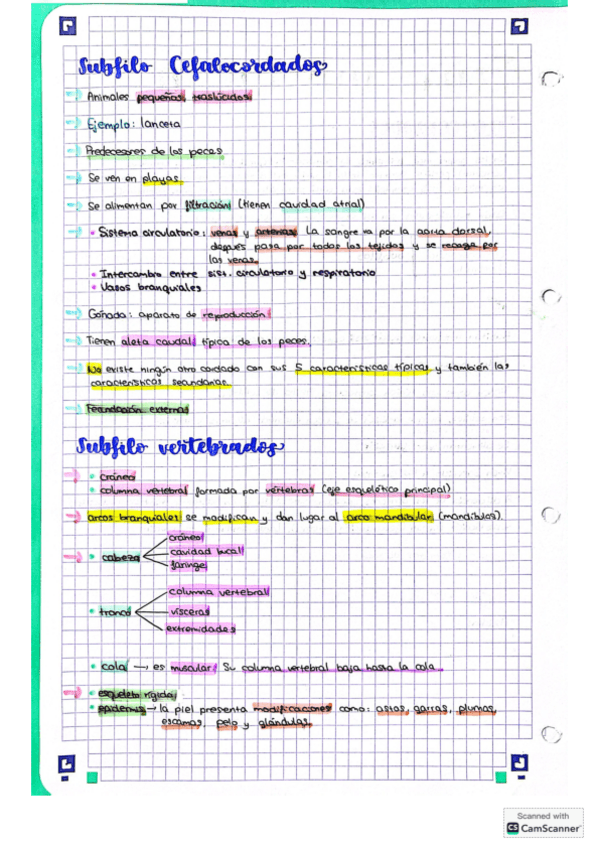 Subfilo Cefalocordados
Animales pequeños, traslúcidos
Ejemplo: lanceta
Predecesores de los peces
Se ven en playas
Se alimentan por filtración (tienen cavidad atrial)
• Sistema circulatorio: venas y arterias. La sangre va por la aorta dorsal,
después pasa por todos los tejidos y se recoge por
las venas.
• Intercambio entre sist. circulatorio y respiratorio
• Vasos branquiales
Gónada: aparato de reproducción
Tienen aleta caudal típica de los peces.
No existe ningún otro cordado con sus 5 características típicas y también las
características secundarias.
Fecundación externa
Subfilo vertebrados
→ • Cráneo
• columna vertebral formada por vértebras (eje esquelético principal)
→ arcos branquiales se modifican y dan lugar al arco mandibular (mandíbulas).
→ • cabeza
cráneo
cavidad bucal
faringe
• tronco
columna vertebral
vísceras
extremidades
• cola → es muscular. Su columna vertebral baja hasta la cola.
→ • esqueleto rígido
• epidermis → la piel presenta modificaciones como: astas, garras, plumas,
escamas, pelo y glándulas.
Scanned with
CS CamScanner